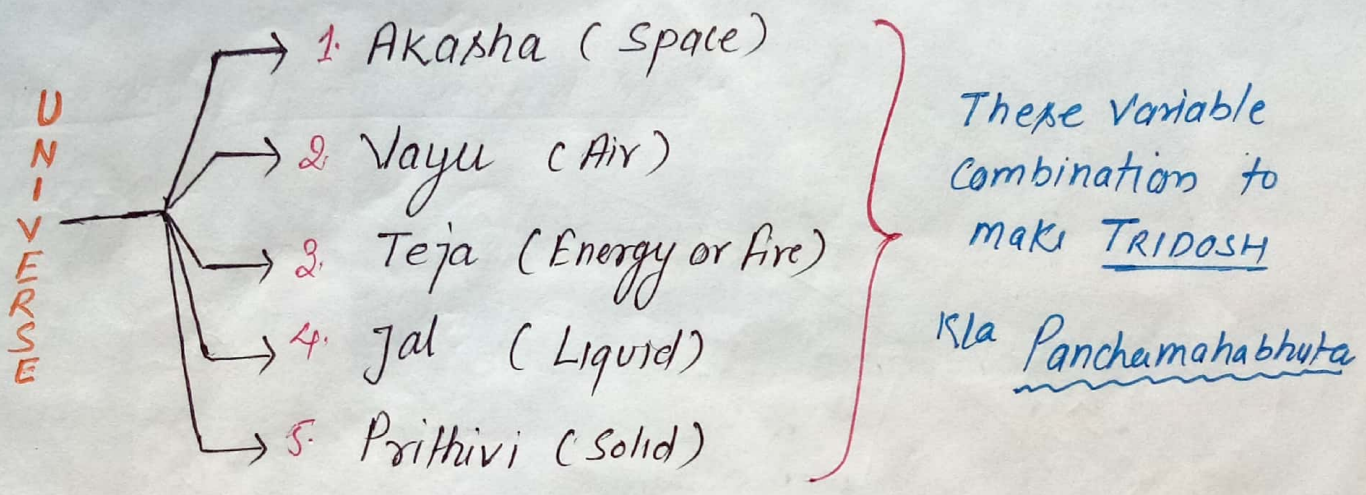 UNIVERSE
1. Akasha (Space)
2. Vayu (Air)
3. Teja (Energy or fire)
4. Jal (Liquid)
5. Prithivi (Solid)
These Variable
Combination to
make TRIDOSH
K/a Panchamahabhuta